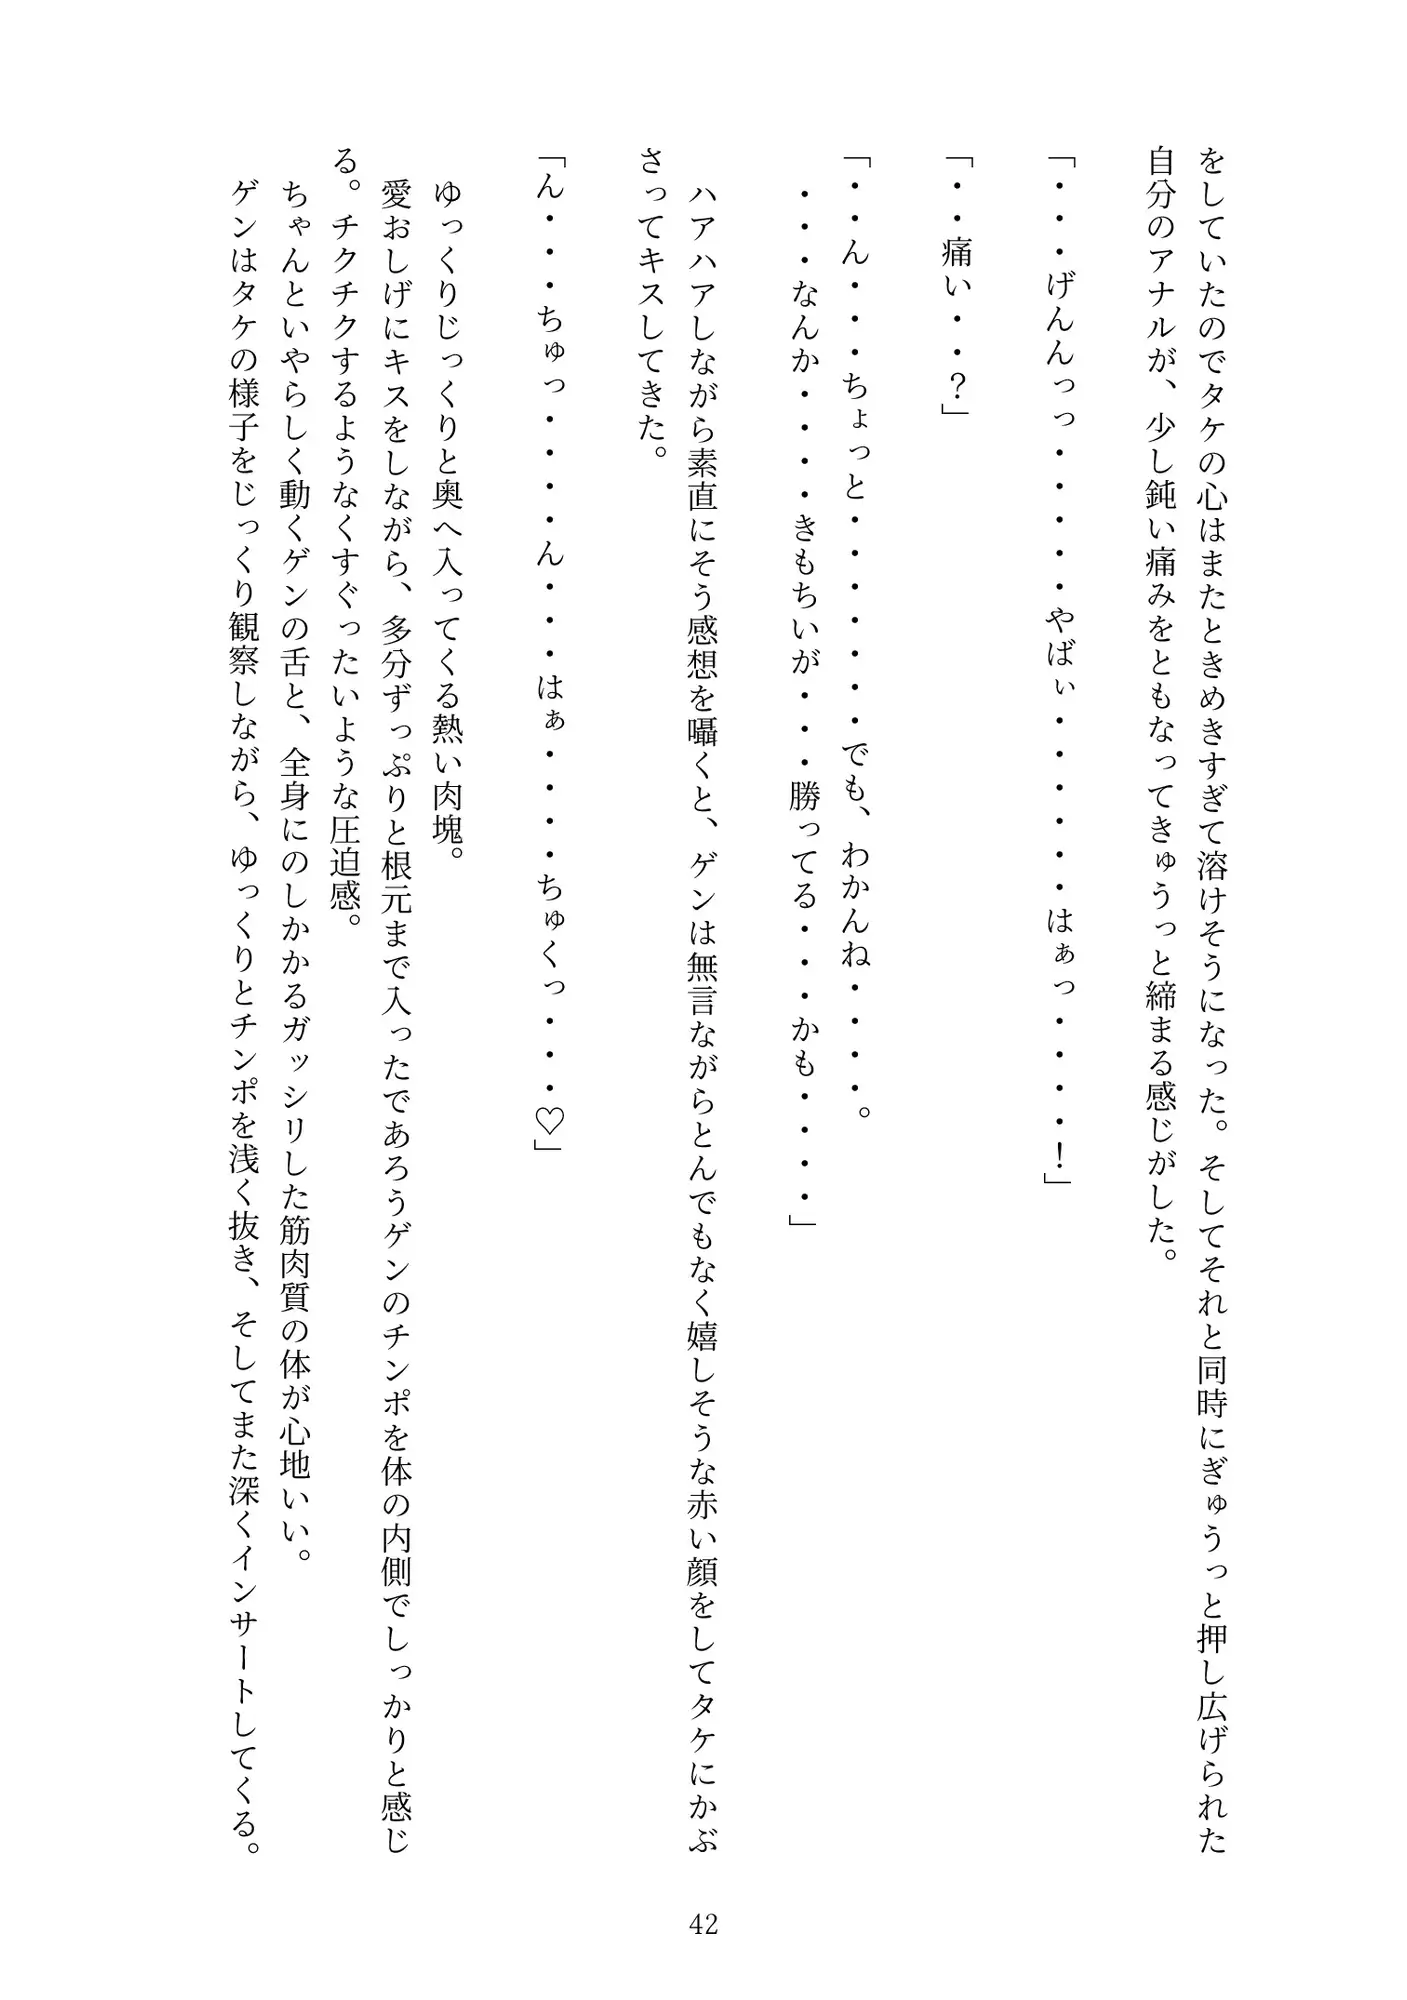 をしていたのでタケの心はまたときめきすぎて溶けそうになった。そしてそれと同時にぎゅうっと押し広げられた
自分のアナルが、少し鈍い痛みをともなってきゅうっと締まる感じがした。
「・・・げんんっっ・・・・・・・やばぃ・・・・・・はぁっ・・・・・！」
「・・痛い・・？」
「・・ん・・・・ちょっと・・・・・・・でも、わかんね・・・・。
・・・なんか・・・・・きもちいが・・・勝ってる・・・・かも・・・・・」
ハアハアしながら素直にそう感想を囁くと、ゲンは無言ながらとんでもなく嬉しそうな赤い顔をしてタケにかぶ
さってキスしてきた。
「ん・・・・ちゅっ・・・・・ん・・・・はぁ・・・・・ちゅくっ・・・・♡」
ゆっくりじっくりと奥へ入ってくる熱い肉塊。
愛おしげにキスをしながら、多分ずっぷりと根元まで入ったであろうゲンのチンポを体の内側でしっかりと感じ
る。チクチクするようなくすぐったいような圧迫感。
ちゃんといやらしく動くゲンの舌と、全身にのしかかるガッシリした筋肉質の体が心地いい。
ゲンはタケの様子をじっくり観察しながら、ゆっくりとチンポを浅く抜き、そしてまた深くインサートしてくる。
42